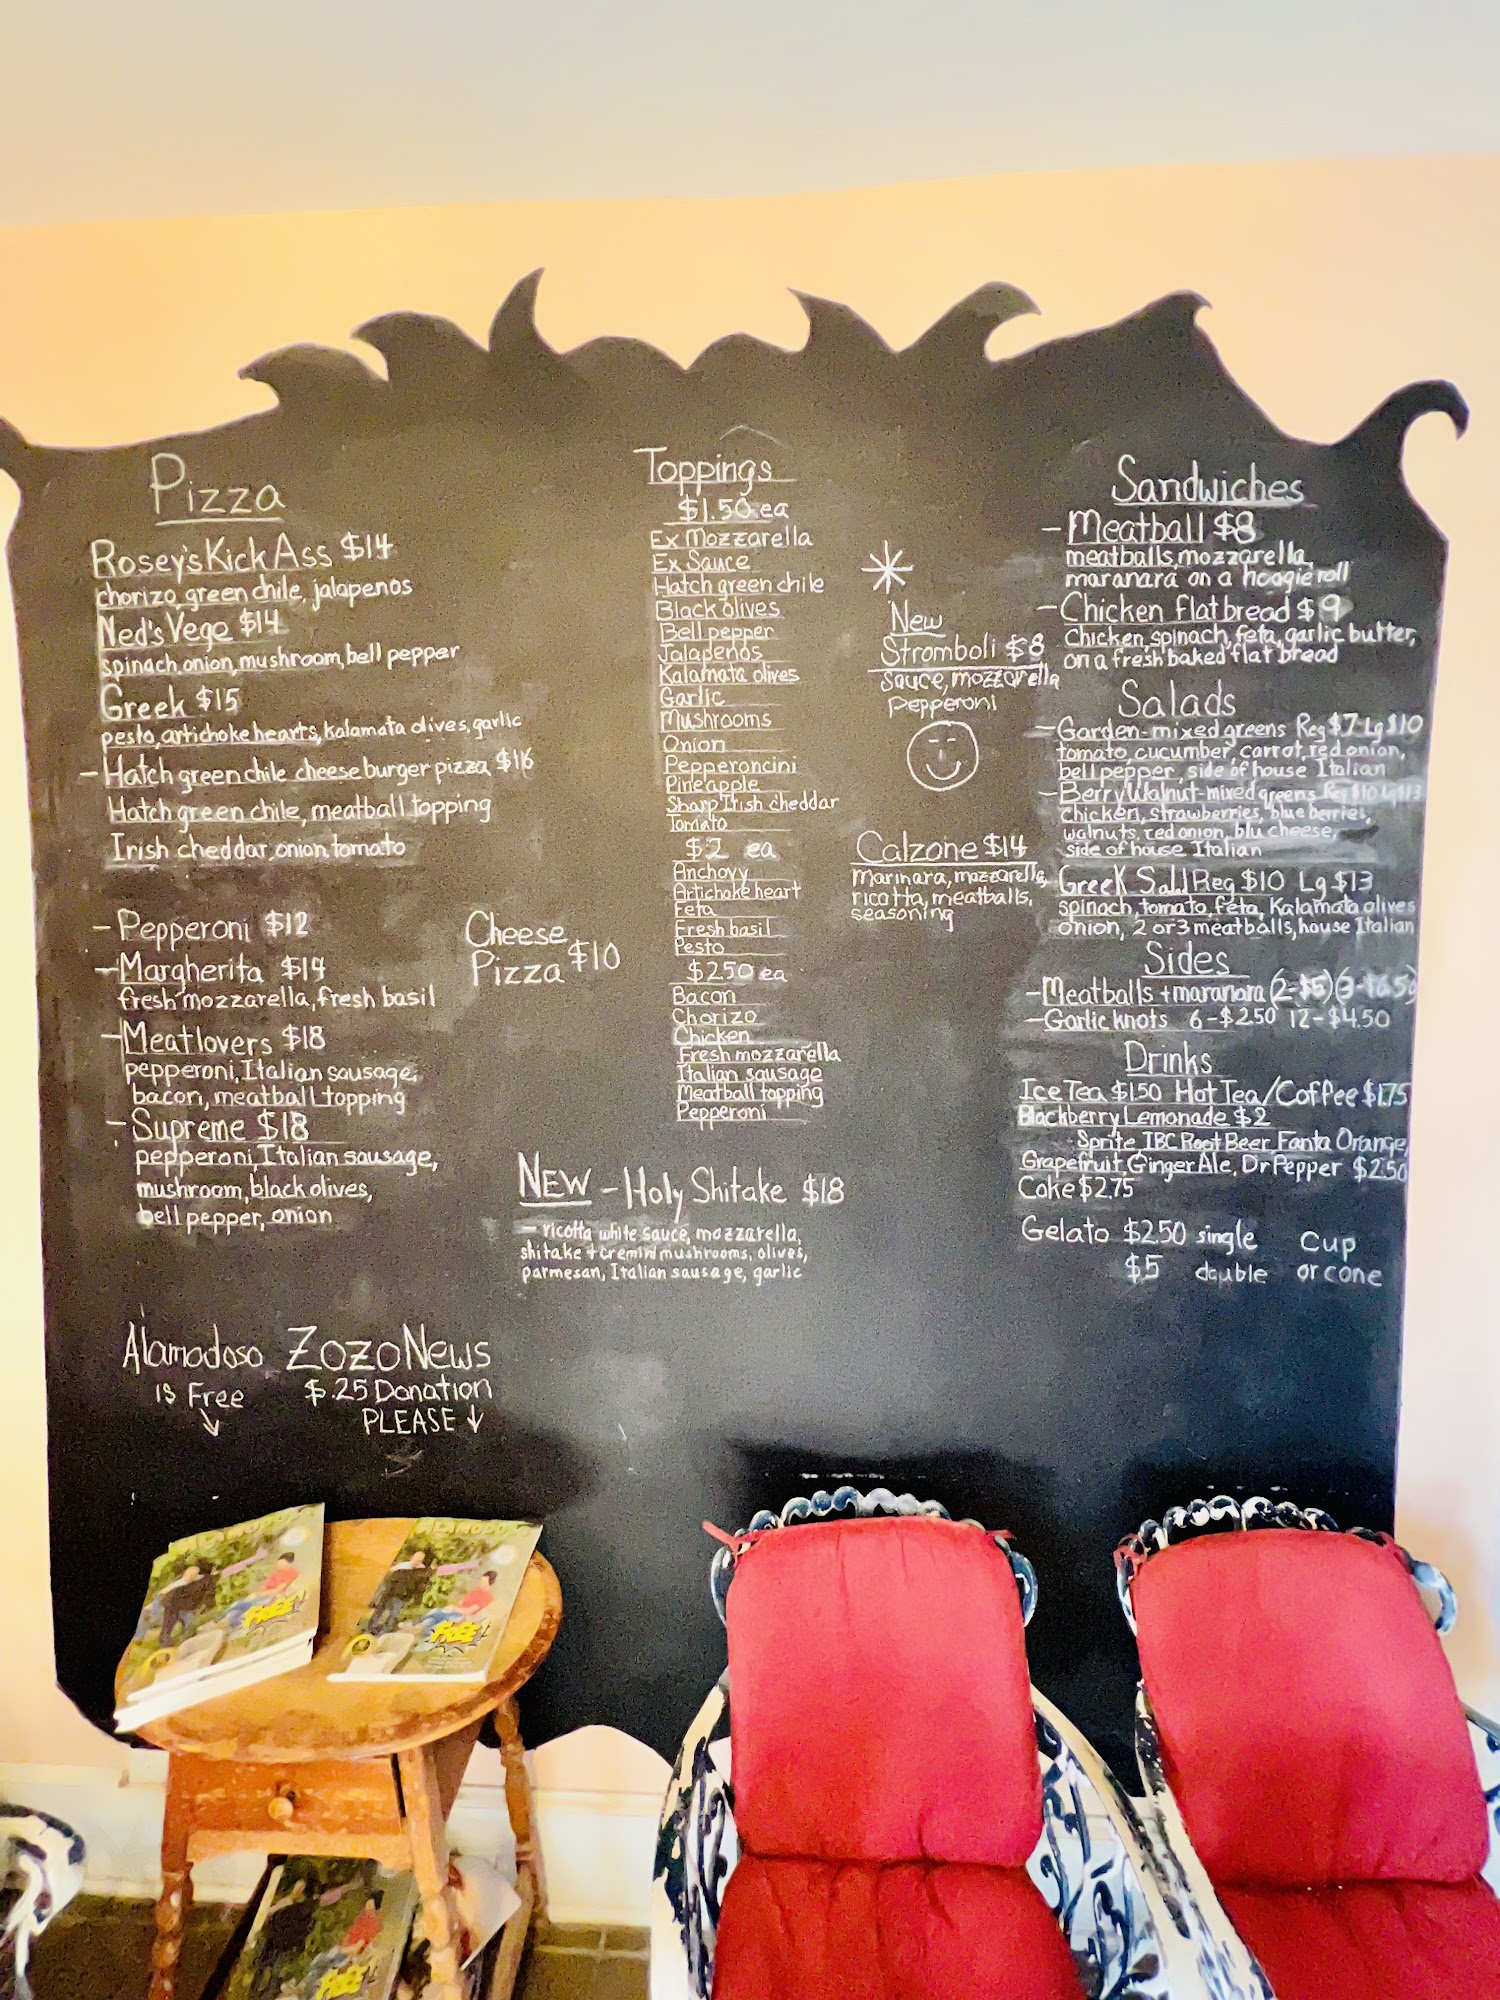 Pizza
Rosey's Kick Ass $14
chorizo, green chile, jalapenos
Ned's Vege $14
spinach, onion, mushroom, bell pepper
Greek $15
pesto, artichoke hearts, kalamata olives, garlic
- Hatch green chile cheeseburger pizza $16
Hatch green chile, meatball topping
Irish cheddar, onion, tomato
- Pepperoni $12
- Margherita $14
fresh mozzarella, fresh basil
- Meatlovers $18
pepperoni, Italian sausage,
bacon, meatball topping
- Supreme $18
pepperoni, Italian sausage,
mushroom, black olives,
bell pepper, onion
Cheese
Pizza $10
Toppings
$1.50 ea
Ex Mozzarella
Ex Sauce
Hatch green chile
Black olives
Bell pepper
Jalapenos
Kalamata olives
Garlic
Mushrooms
Onion
Pepperoncini
Pineapple
Sharp Irish cheddar
Tomato
$2 ea
Anchovy
Artichoke heart
Feta
Fresh basil
Pesto
$2.50 ea
Bacon
Chorizo
Chicken
Fresh mozzarella
Italian sausage
Meatball topping
Pepperoni
NEW - Holy Shitake $18
- ricotta white sauce, mozzarella,
shitake + cremini mushrooms, olives,
parmesan, Italian sausage, garlic
New
Stromboli $8
Sauce, mozzarella
pepperoni
Calzone $14
Marinara, mozzarella,
ricotta, meatballs,
seasoning
Sandwiches
- Meatball $8
meatballs, mozzarella,
maranara on a hoagie roll
- Chicken flatbread $9
Chicken, spinach, feta, garlic butter,
on a fresh baked flat bread
Salads
- Garden-mixed greens Reg $7 Lg $10
tomato, cucumber, carrot, red onion,
bell pepper, side of house Italian
- Berry Walnut-mixed greens Reg $10 Lg $13
chicken, strawberries, blue berries,
walnuts, red onion, blu cheese,
side of house Italian
Greek Salad Reg $10 Lg $13
spinach, tomato, feta, Kalamata olives
onion, 2 or 3 meatballs, house Italian
Sides
- Meatballs + maranara (2-$5) (3-$6.50)
- Garlic knots 6-$2.50 12-$4.50
Drinks
Ice Tea $1.50 Hot Tea/Coffee $1.75
Blackberry Lemonade $2
Sprite, IBC Root Beer, Fanta Orange,
Grapefruit, Ginger Ale, Dr Pepper $2.50
Coke $2.75
Gelato $2.50 single cup
$5 double or cone
Alamodoso ZozoNews
is Free $.25 Donation
PLEASE
FREE!
FREE!
FREE!